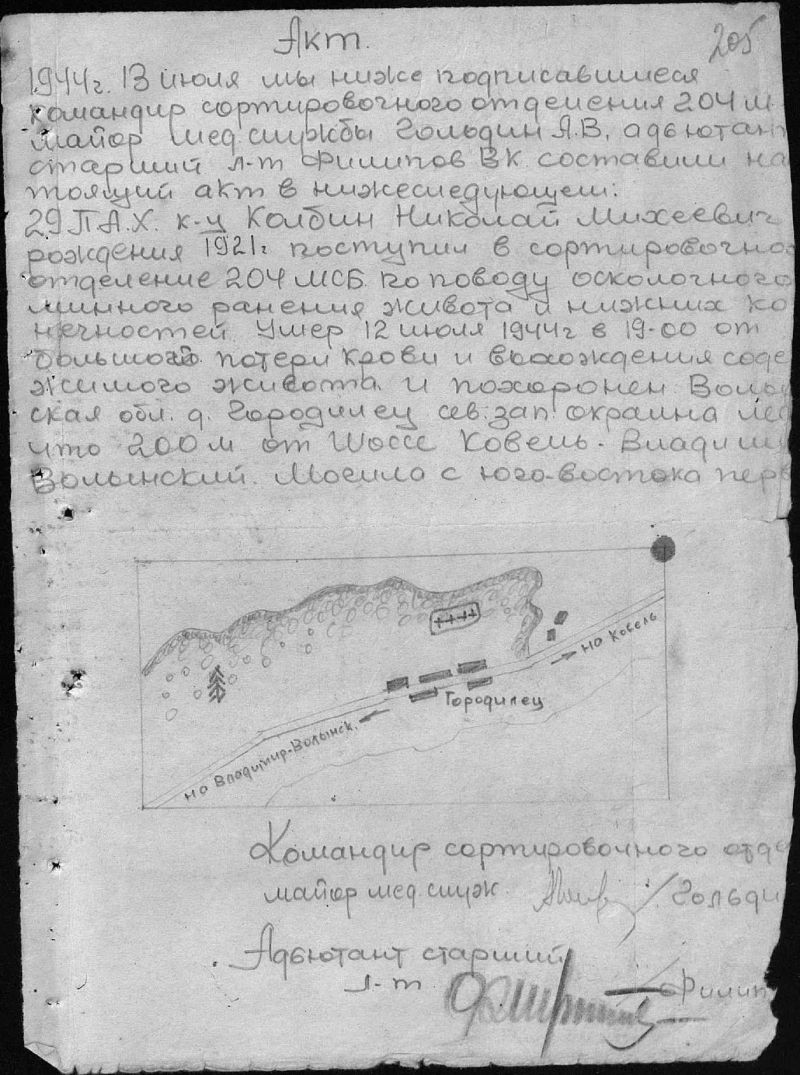 Акт.
205
1944г. 13 июля мы ниже подписавшиеся
командир сортировочного отделения 204 м
майор мед. службы Гольдин Я.В, адъютант
старший л-т Филипов В.К. составили на
тоящий акт в нижеследующем:
29 П.А.Х. к-ц Колбин Николай Михеевич
рождения 1921г поступил в сортировочно
отделение 204 МСБ по поводу осколочного
минного ранения живота и нижних ко
нечностей. Умер 12 июля 1944г в 19-00 от
большой потери крови и выхождения соде
жимого живота и похоронен Волы
ская обл. д. Городилец сев. зап. окраина ле
что 200 м от Шоссе Ковель-Владими
Волынский. Могила с юго-востока перв
на Ковель
Городилец
на Владимир-Волынск.
Командир сортировочного отде
майор мед служ. / Гольди
Адъютант старший
л-т Филип